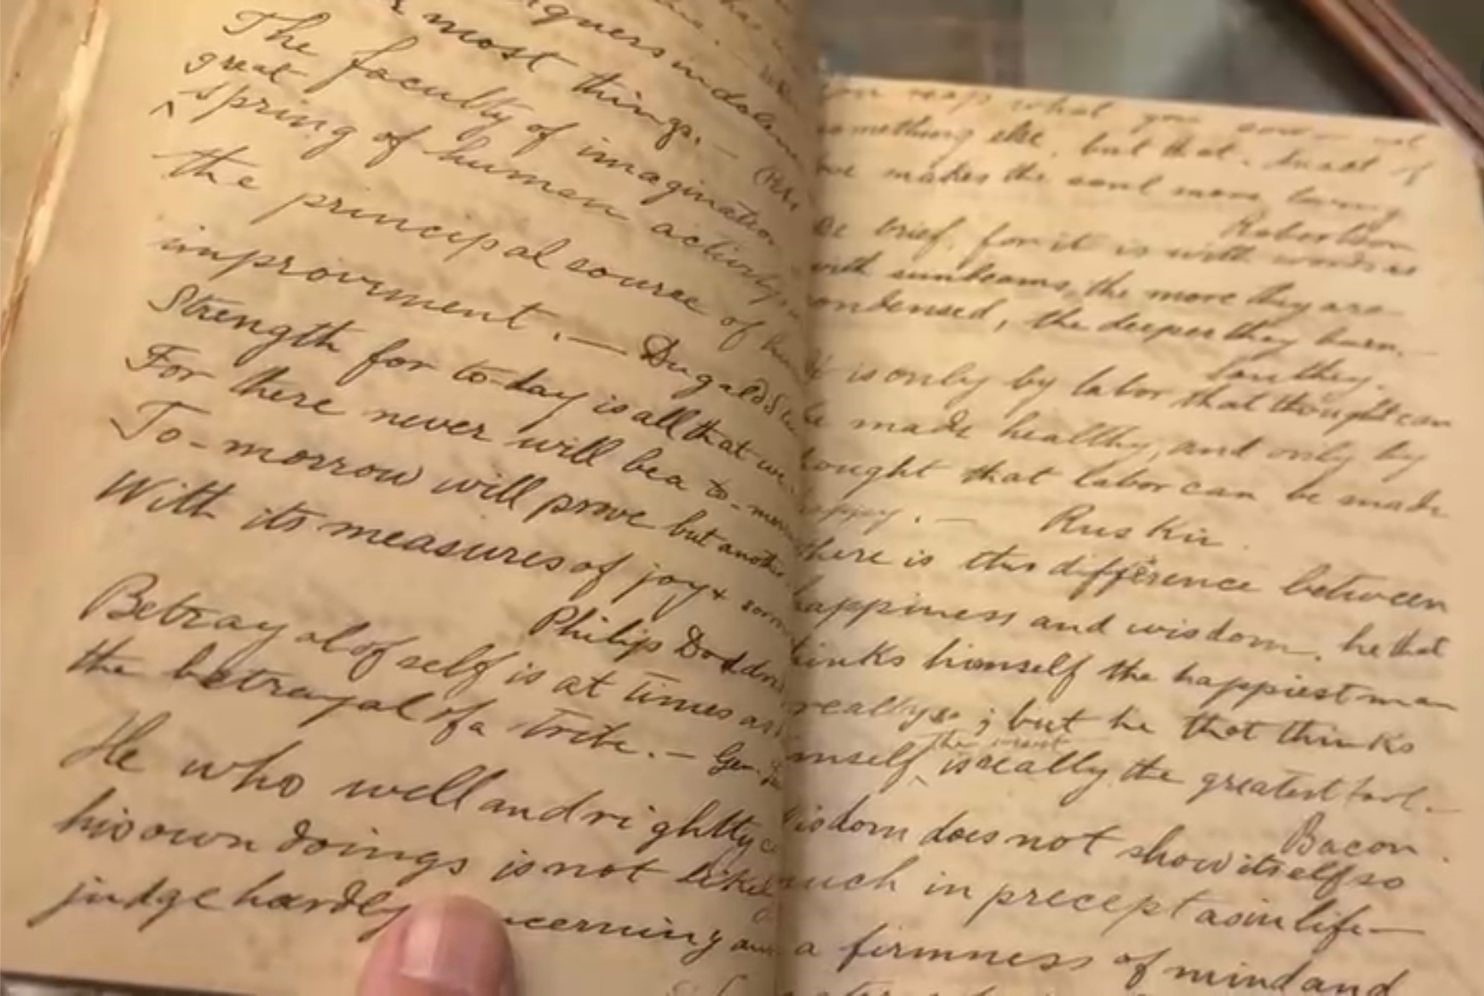 most things. —
The faculty of imagination
great
^ spring of human activity
the principal source of
improvment. — Dugald
Strength for to-day is all that we
For there never will be a to-
To-morrow will prove but another
With its measures of joy +
Philip
Betrayal of self is at times as
the betrayal of a —
He who well and rightly
his own doings is not
judge hardly
you reap what you sow — not
something else, but that. An act of
makes the soul more loving
Robertson
be brief, for it is with words as
with sunbeams, the more they are
condensed, the deeper they burn. —
Southey.
is only by labor that thought can
be made healthy, and only by
thought that labor can be made
happy. — Ruskin.
there is this difference between
happiness and wisdom. he that
thinks himself the happiest man
really is ; but he that thinks
the
himself ^ is really the greatest fool. —
Bacon.
does not show itself so
much in precept as in life —
a firmness of mind and